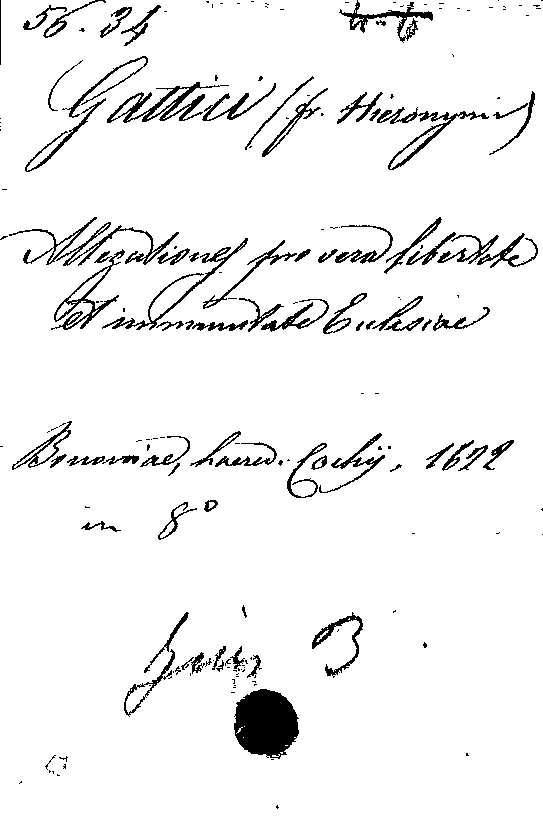 56.34
Gattici (fr. Hieronymi)
Allegationes pro vera libertate
et immunitate Ecclesiae
Bononiae, haered. Cochij, 1622
in 8°
B